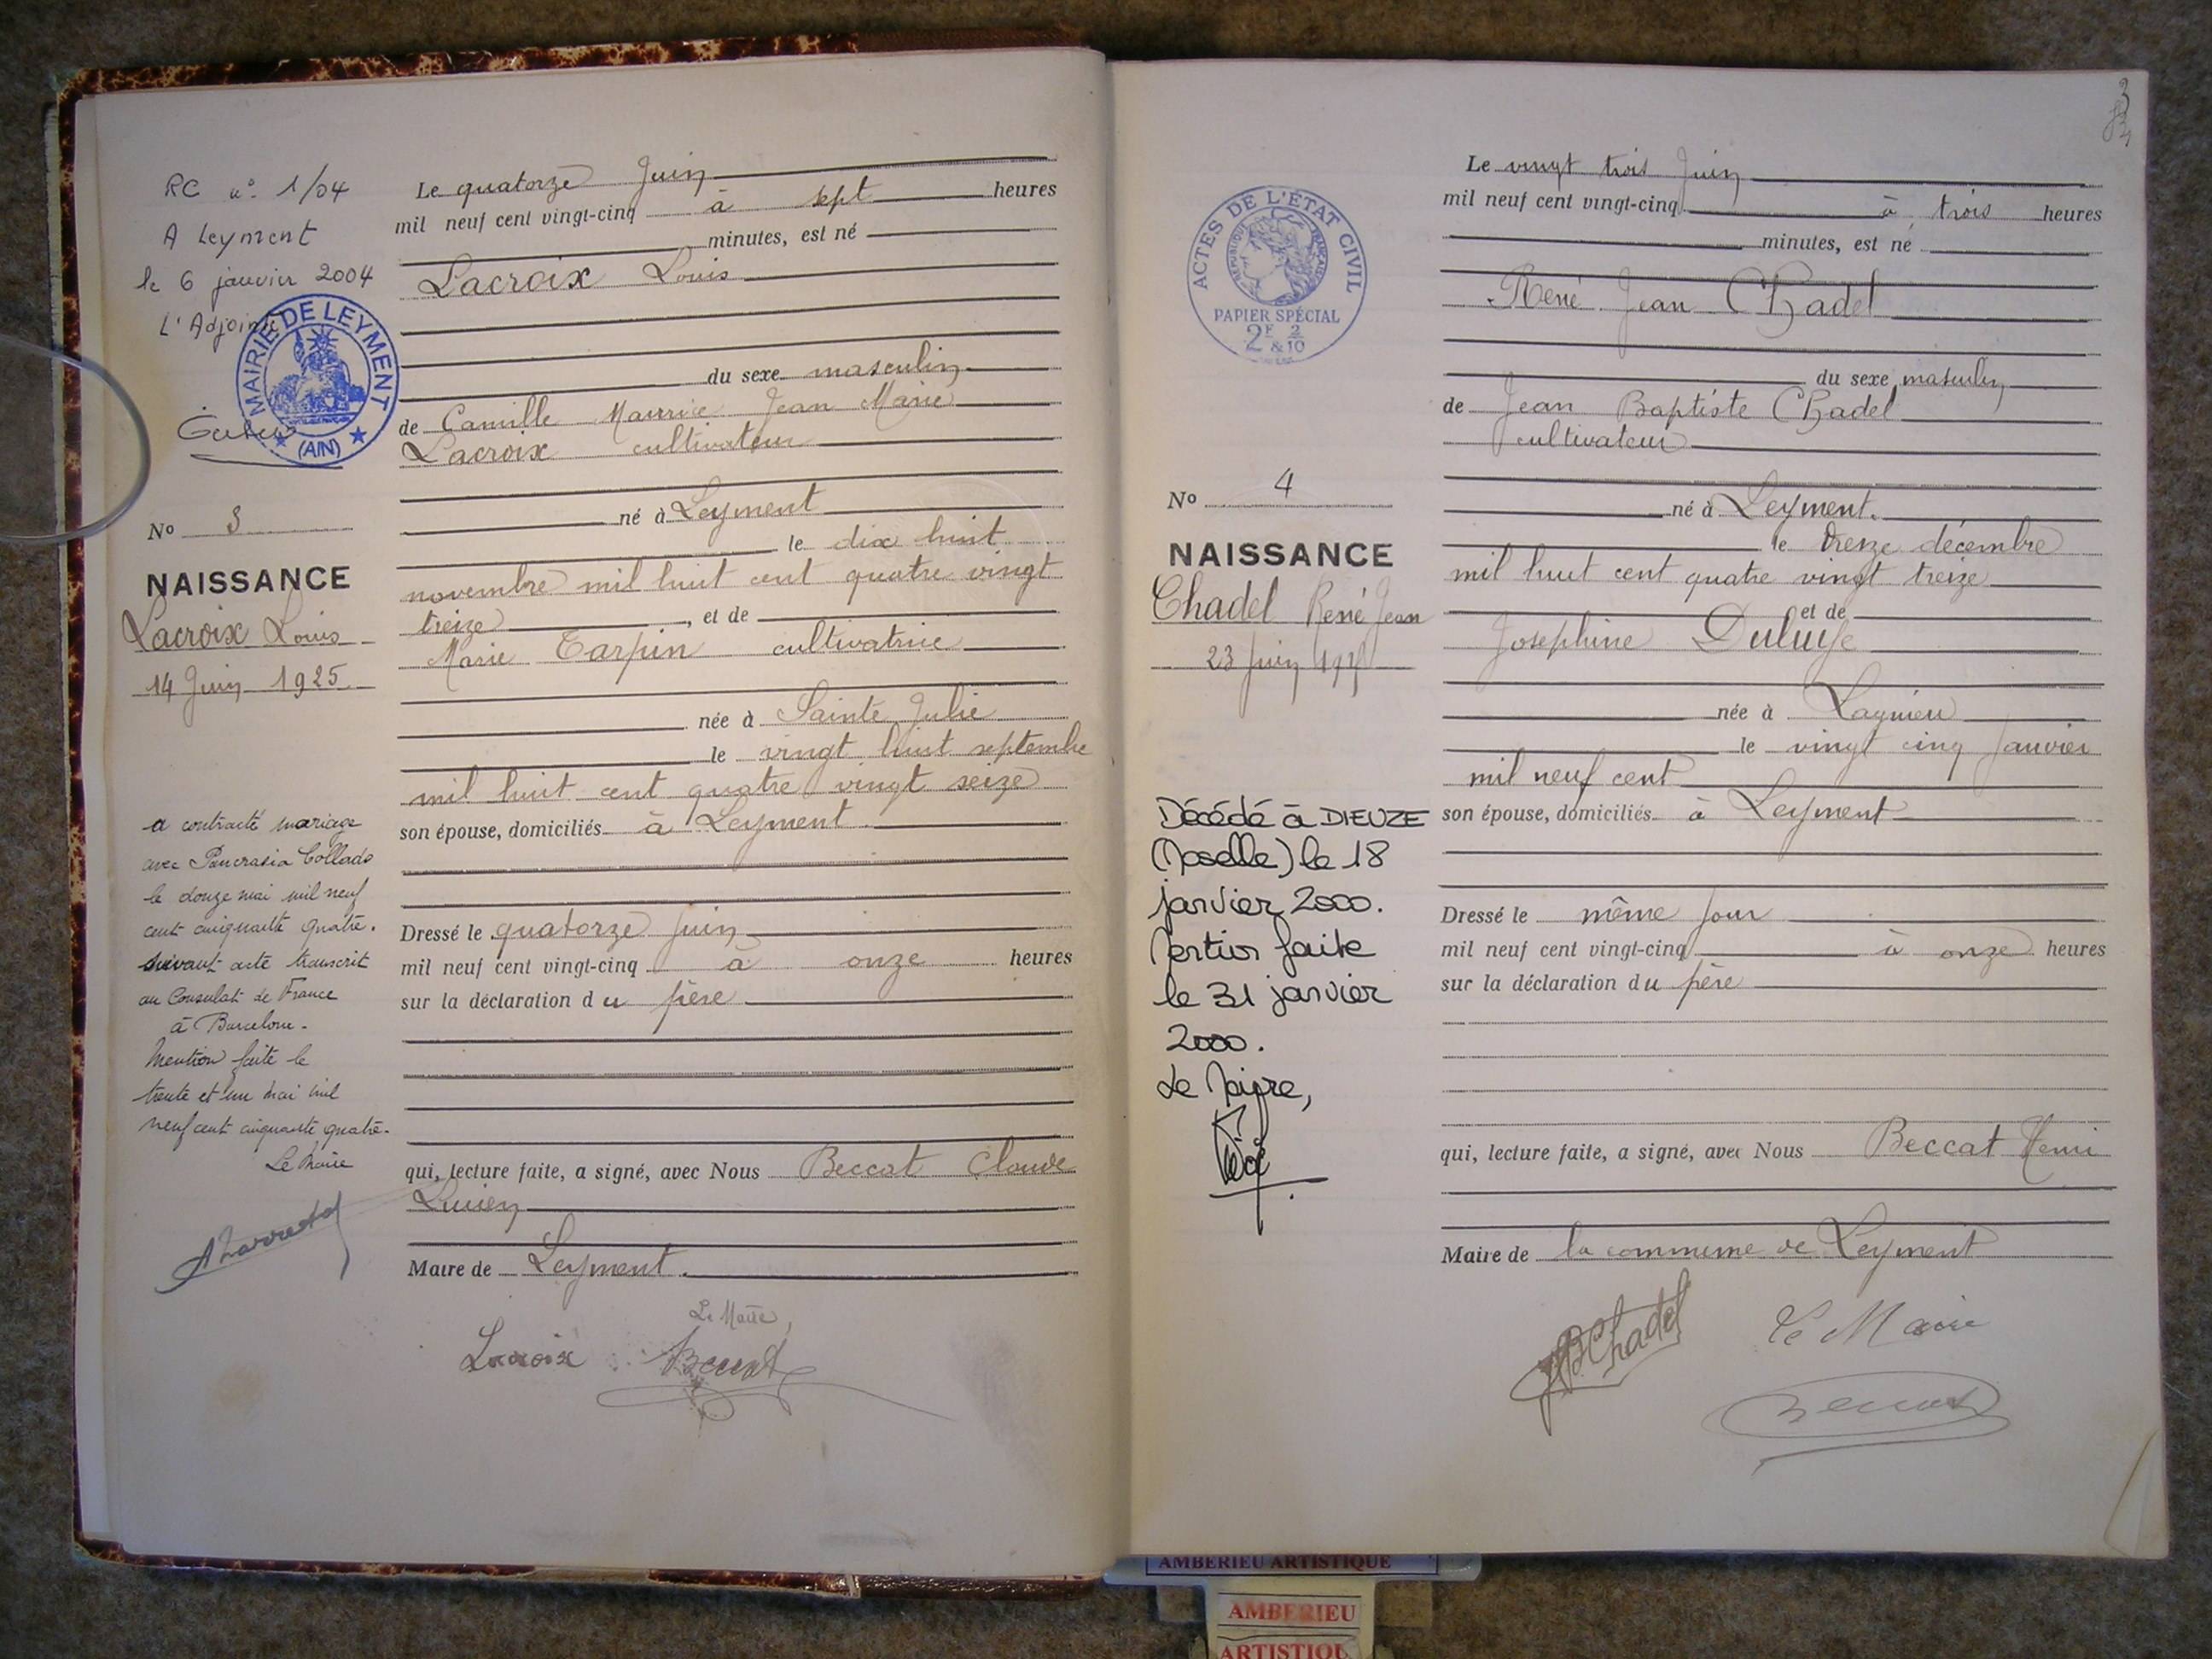 RC n° 1/04
A Leyment
le 6 janvier 2004
L'Adjoint
MAIRIE DE LEYMENT
(AIN)
No 3
NAISSANCE
Lacroix Louis
14 Juin 1925
a contracté mariage
avec Pancrasia Collado
le douze mai mil neuf
cent cinquante quatre.
suivant acte transcrit
au Consulat de France
à Barcelone.
Mention faite le
trente et un mai mil
neuf cent cinquante quatre.
Le Maire
Le quatorze Juin
mil neuf cent vingt-cinq à sept heures
minutes, est né
Lacroix Louis
du sexe masculin
de Camille Maurice Jean Marie
Lacroix cultivateur
né à Leyment
le dix huit
novembre mil huit cent quatre vingt
treize, et de
Marie Tarpin cultivatrice
née à Sainte Julie
le vingt huit septembre
mil huit cent quatre vingt seize
son épouse, domiciliés à Leyment.
Dressé le quatorze Juin
mil neuf cent vingt-cinq à onze heures
sur la déclaration du père
qui, lecture faite, a signé, avec Nous Beccat Claude
Lucien
Maire de Leyment.
Le Maire,
Lacroix Beccat
3
ACTES DE L'ÉTAT CIVIL
RÉPUBLIQUE FRANÇAISE
PAPIER SPÉCIAL
2F & 2/10
No 4
NAISSANCE
Chadel René Jean
23 Juin 1925
Décédé à DIEUZE
(Moselle) le 18
janvier 2000.
Mention faite
le 31 janvier
2000.
Le Maire,
Le vingt trois Juin
mil neuf cent vingt-cinq à trois heures
minutes, est né
René Jean Chadel
du sexe masculin
de Jean Baptiste Chadel
cultivateur
né à Leyment.
le treize décembre
mil huit cent quatre vingt treize
et de
Josephine Duluye
née à Lagnieu
le vingt cinq Janvier
mil neuf cent
son épouse, domiciliés à Leyment
Dressé le même jour
mil neuf cent vingt-cinq à onze heures
sur la déclaration du père
qui, lecture faite, a signé, avec Nous Beccat Henri
Maire de la commune de Leyment
JB Chadel
Le Maire
Beccat
AMBERIEU ARTISTIQUE
AMBERIEU
ARTISTIQUE